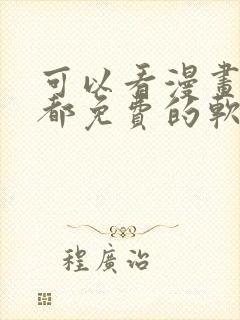 可以看漫畫
都免費的軟
程廣治